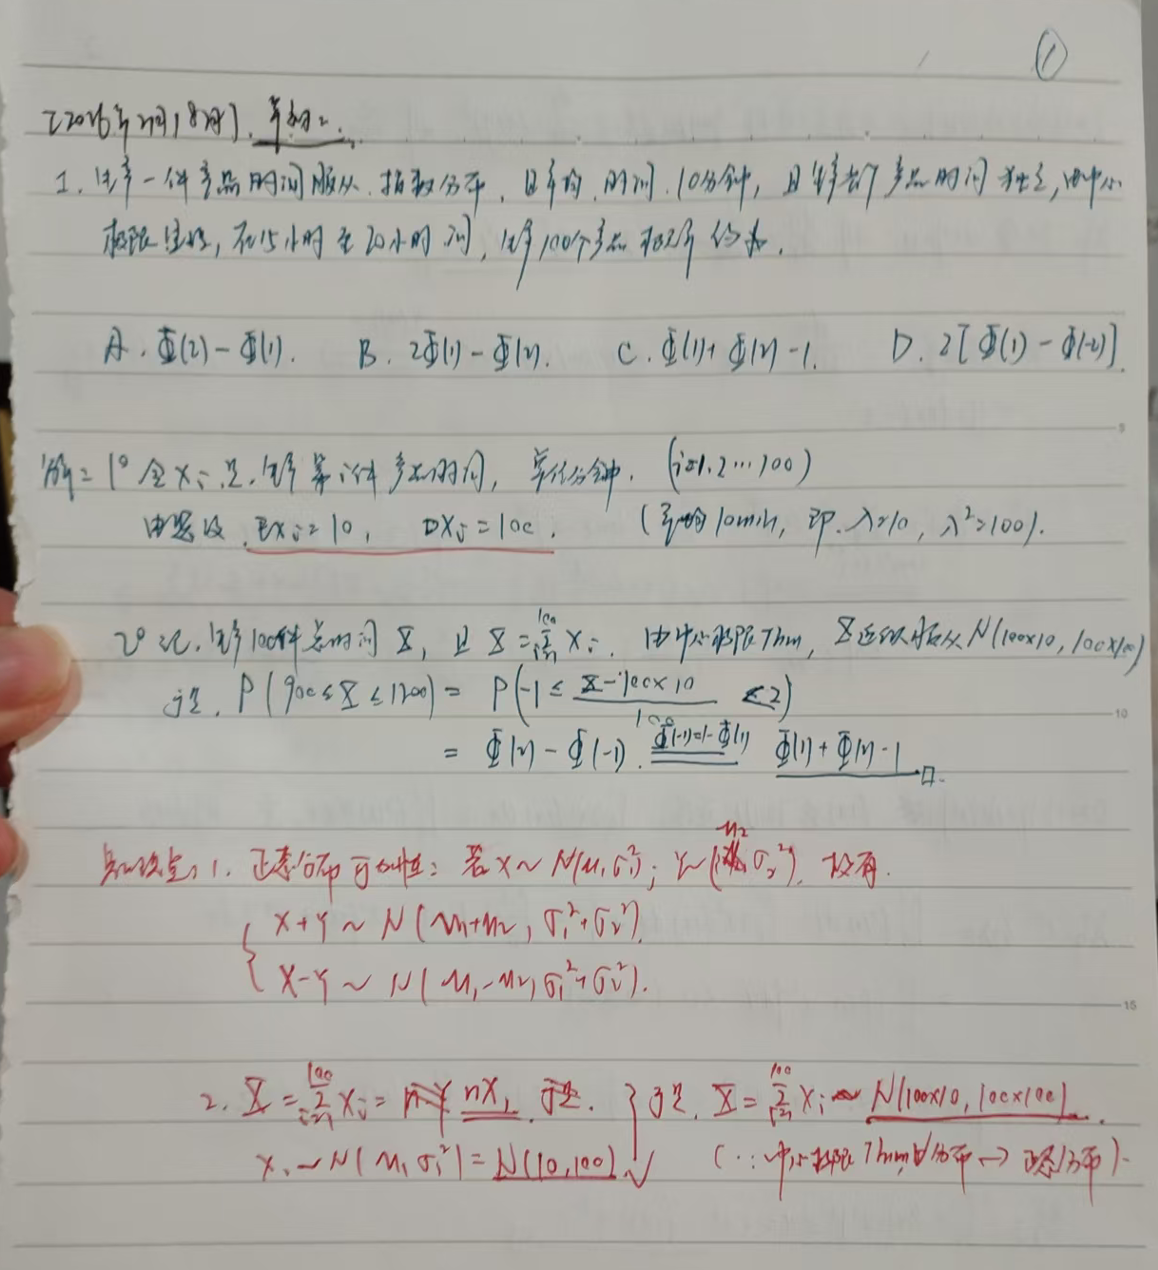 ①
【2026年2月18日】. 星期二.
1. 生产一件产品时间服从指数分布, 且平均时间 10分钟, 且生产各个产品时间独立, 由中心
极限定理, 在15小时至20小时间, 生产100个产品概率约为.
A. Φ(2) − Φ(1). B. 2Φ(1) − Φ(2). C. Φ(1) + Φ(2) − 1. D. 2[Φ(1) − Φ(2)].
解= 1° 令 Xi 是生产第i件产品时间, 单位分钟. (i=1.2…100)
由题设 EXi = 10, DXi = 100. (平均10min, 即 λ=10, λ²=100).
2° 记, 生产100件总时间 X, 且 X = Σ_{i=1}^{100} Xi. 由中心极限Thm, X近似服从 N(100×10, 100×100)
于是, P(900 ≤ X ≤ 1200) = P(−1 ≤ (X − 100×10)/100 ≤ 2)
= Φ(2) − Φ(−1). Φ(−1)=1−Φ(1) Φ(1) + Φ(2) − 1 □.
知识点: 1. 正态分布可加性: 若 X ~ N(μ1, σ1²); Y ~ (μ2, σ2²). 故有.
{ X+Y ~ N(μ1+μ2, σ1²+σ2²).
X−Y ~ N(μ1−μ2, σ1²+σ2²).
2. X = Σ_{i=1}^{100} Xi = nX1 于是. } 于是. X = Σ_{i=1}^{100} Xi ~ N(100×10, 100×100).
X1 ~ N(μ1, σ1²) = N(10, 100) √ (∵ 中心极限Thm, ∀分布 → 正态分布).